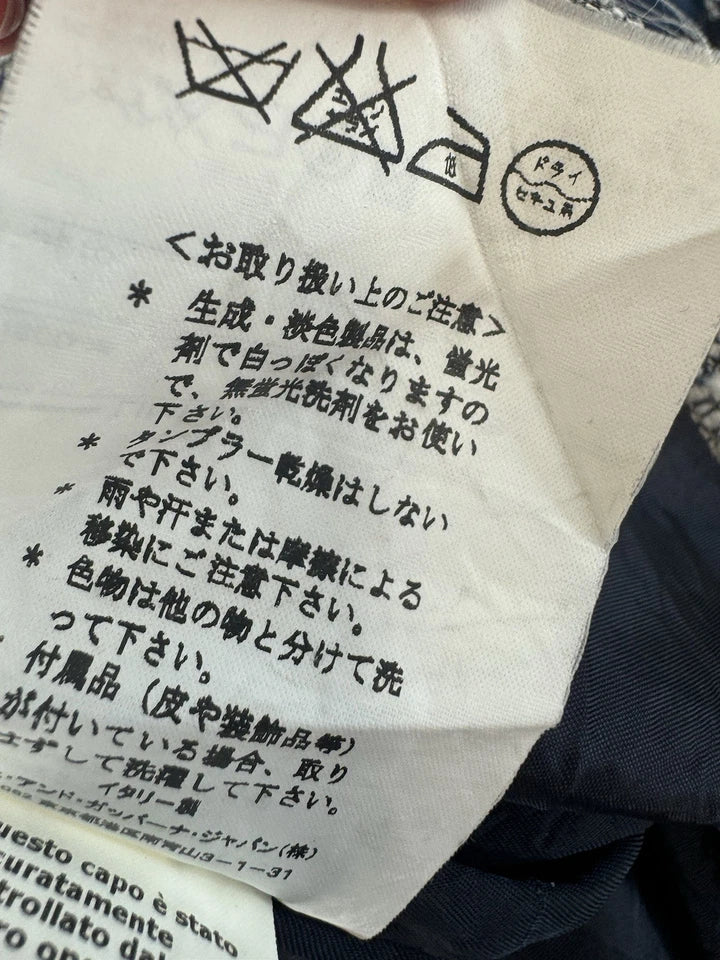 エンソ
サラシ
低
ドライ
セキユ系
<お取り扱い上のご注意>
* 生成・淡色製品は、蛍光
剤で白っぽくなりますの
で、無蛍光洗剤をお使い
下さい。
* タンブラー乾燥はしない
で下さい。
* 雨や汗または摩擦による
移染にご注意下さい。
* 色物は他の物と分けて洗
って下さい。
付属品(皮や装飾品等)
が付いている場合、取り
はずして洗濯して下さい。
イタリー製
・アンド・ガッバーナ・ジャパン(株)
東京都港区南青山3-1-31
uesto capo è stato
curatamente
trollato dal
ro ope